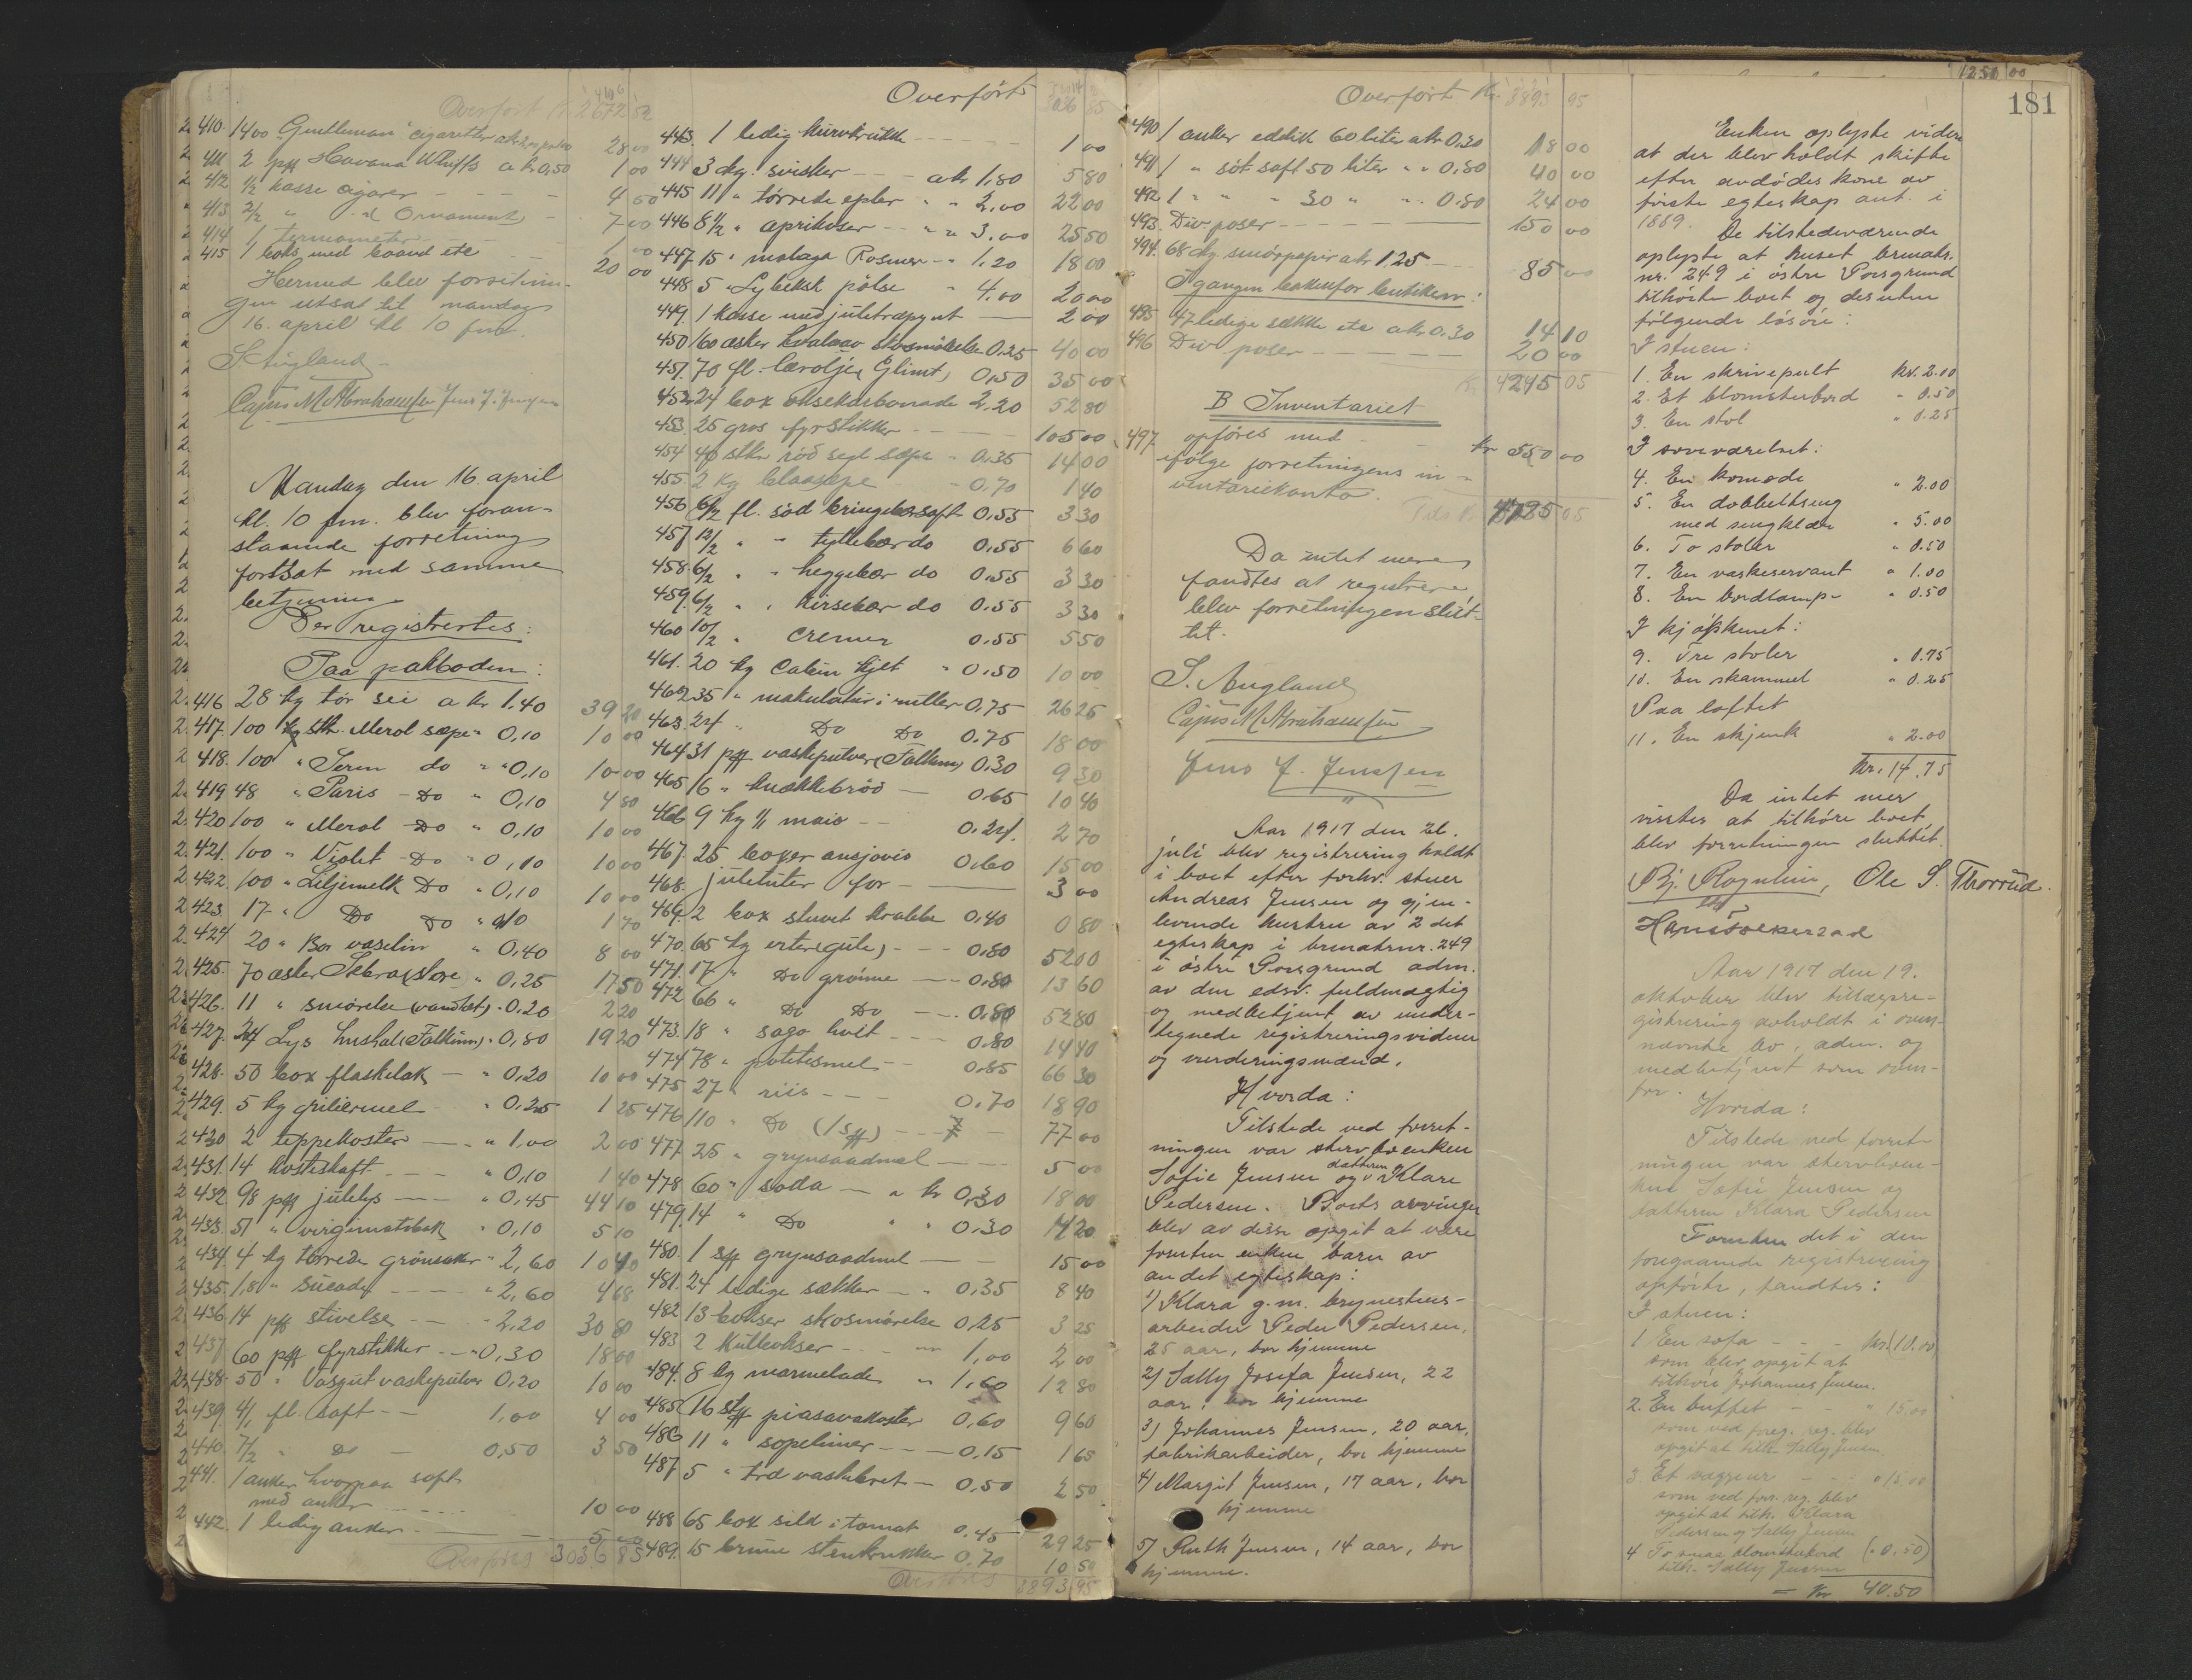 Overført Kr. 2672 52
410. 1400 "Gentleman" cigaretter a kr. 28 00
411 2 pk Havana Whiffs a kr 0,50 1 00
412 1/2 kasse cigarer - - - 4 00
413 2/2 " " d Ornament - 7 00
414 1 termometer - - 1 00
415 1 boks med baand etc - - 20 00
Hermed blev forretnin-
gen utsat til mandag
16. april kl. 10 fm.
S. Augland
Cajus M Abrahamsen Jens J. Jensen
Mandag den 16. april
kl. 10 fm. blev foran-
staaende forretning
fortsat med samme
betjening.
Der registrertes:
Paa pakboden:
416 28 kg tør sei a kr 1.40 39 20
417. 100 stk. Merol sæpe " 0,10 10 00
418. 100 " Serin do " " 0,10 10 00
419 48 " Paris - Do " 0,10 4 80
420 100 " Merol - Do " 0,10 10 00
421. 100 " Violet - Do " 0,10 10 00
422. 100 " Liljemelk Do " 0,10 10 00
423. 17 " Do Do " 0,10 1 70
424 20 " Bor vaselin " 0,40 8 00
425. 70 æsker Sebra (store) " 0,25 17 50
426. 11 " smørelse (vandtæt) " 0,20 2 20
427. 24 Lys hushol. (Falkum) " 0,80 19 20
428. 50 box flaskelak - " 0,20 10 00
429. 5 kg griliermel - " 0,25 1 25
430 2 teppekoster - - " 1,00 2 00
431. 14 kosteskaft - - " 0,10 1 40
432 98 pk julelys - - " 0,45 44 10
433. 51 " virginiatobak " 0,10 5 10
434. 4 kg tørrede grønsaker " 2,60 10 40
435. 1,8 " sucade - - - " 2,60 4 68
436. 14 pk stivelse - - - 2,20 30 80
437 60 pk fyrstikker - - " 0,30 18 00
438. 50 " Vasgut vaskepulver 0,20 10 00
439. 4/1 fl. saft - - 1,00 4 00
440. 7/2 " Do - 0,50 3 50
441. 1 anker hvorpaa saft
med anker - - - - 10 00
442. 1 ledig anker - 5 00
Overføres 3036 85
Overført 3036 85
443. 1 ledig kurvkrukke - - - - 1 00
444 3 kg. svisker - - - a kr 1,80 5 80
445 11 " tørrede epler " " 2,00 22 00
446 8 1/2 " aprikoser - - " " 3,00 25 50
447 15 " malaga Rosiner - " 1,20 18 00
448 5 Lybeksk pølse " 4,00 20 00
449. 1 kasse med juletræpynt - 2 00
450 160 æsker skosmørelse 0,25 40 00
451. 70 fl. Læroljer (Glimt) 0,50 35 00
452 24 box oksekarbonade 2,20 52 80
453. 25 gros fyrstikker - - - - 105 00
454 40 stkr rød segl sæpe - 0,35 14 00
455. 2 kg blaasæpe - 0.70 1 40
456 6/2 fl. sød bringebærsaft 0,55 3 30
457 12/2 " - tyttebær do 0,55 6 60
458. 6/2 " - heggebær do 0,55 3 30
459. 6/2 " " kirsebær do 0,55 3 30
460 10/2 " cremer 0.55 5 50
461. 20 kg Calcin hjelt " 0,50 10 00
462 35 " makulatur i ruller 0,75 26 25
463 24 " Do Do 0.75 18 00
464 31 pk vaskepulver (Falkum) 0,30 9 30
465 16 " knækkebrød - 0.65 10 40
466 9 kg 1/1 mais - - 0.24 2 70
467. 25 boxer ansjovis 0,60 15 00
468. juletuter for - 3 00
469. 2 box stuvet krabbe 0,40 0 80
470. 65 kg erter (gule) - - - 0,80 52 00
471. 17 " Do grønne - - 0,80 13 60
472 66 " Do Do - - 0,80 52 80
473. 18 " sago hvit - - - 0.80 14 40
474 78 " potetesmel - - 0,85 66 30
475 27 " riis - - - 0,70 18 90
476 110 " Do (1 sk) - - 77 00
477. 25 " grynsaadmel - - 5 00
478 60 " soda - " kr 0,30 18 00
479. 14 " Do " " 0,30 4 20
480. 1 sk grynsaadmel - - 15 00
481. 24 ledige sækker - " 0,35 8 40
482 13 bokser skosmørelse 0,25 3 25
483 2 kulbokser - - - " 1,00 2 00
484. 8 kg marmelade " 1,60 12 80
485 16 stk piasavakoster 0,60 9 60
486 11 " sopelimer - - - 0,15 1 65
487 5 " træ vaskebret - 0,50 2 50
488 65 box sild i tomat 0.45 29 25
489. 15 brune stenkrukker 0.70 10 50
Overføres 3893 95
Overført Kr. 3893 95
490 1 anker eddik 60 liter a kr 0,30 18 00
491 1 " søt saft 50 liter " " 0,80 40 00
492 1 " " " 30 " " " 0.80 24 00
493. Div poser - - - - 150 00
494. 68 kg smørpapir a kr 1.25 - 85 00
I gangen bakenfor butikken:
495 47 ledige sække etc a kr 0.30 14 10
496 Div poser - - - - - 20 00
Kr. 4245 05
B Inventariet
497. opføres med - - Kr 550 00
ifølge forretningens in-
ventariekonto.
Tils Kr. 4795 05
Da intet mere
fandtes at registrere
blev forretningen slut-
tet.
S. Augland
Cajus M Abrahamsen
Jens J. Jensen
"
Aar 1917 den 26.
juli blev registrering holdt
i boet efter forhv. stuer
Andreas Jensen og gjen-
levende hustru av 2 det
egteskap i brmatrnr. 249
i østre Porsgrund adm.
av den edsv. fuldmægtig
og medbetjent av under-
tegnede registreringsvidner
og vurderingsmænd.
Hvorda:
Tilstede ved forret-
ningen var stervboenken
Sofie Jensen og datteren Klara
Pedersen. Boets arvinger
blev av disse opgit at være
foruten enken barn av
andet egteskap:
1) Klara g.m. brynesteins-
arbeider Peder Pedersen,
25 aar, bor hjemme
2) Sally Josefa Jensen, 22
aar, bor hjemme
3) Johannes Jensen, 20 aar,
fabrikarbeider, bor hjemme
4) Margit Jensen, 17 aar, bor
hjemme
5) Ruth Jensen, 14 aar, bor
hjemme.
1250 00
181
Enken oplyste videre
at der blev holdt skifte
efter avdødes kone av
første egteskap ant. i
1889.
De tilstedeværende
oplyste at huset brmatr.
nr. 249 i østre Porsgrund
tilhørte boet og desuten
følgende løsøre:
I stuen:
1. En skrivepult kr. 2.00
2. Et blomsterbord " 0.50
3. En stol " 0.25
I soveværelset:
4. En komode " 2.00
5. En dobbeltseng
med sengklær " 5.00
6. To stoler " 0.50
7. En vaskeservant " 1.00
8. En bordlampe " 0.50
I kjøkkenet:
9. Tre stoler " 0.75
10. En skammel " 0.25
Paa loftet
11. En skjenk " 2.00
Kr. 14.75
Da intet mer
visstes at tilhøre boet
blev forretningen sluttet.
Bj. Rognlien, Ole S. Thorrud.
Hans
Aar 1917 den 19.
oktober blev tillægsre-
gistrering avholdt i oven-
nævnte bo, adm. og
medbetjent som oven-
for.
Hvorda:
Tilstede ved forret-
ningen var stervboen-
ken Sofie Jensen og
datteren Klara Pedersen
Foruten det i den
foregaaende registrering
opførte, fandtes:
I stuen:
1. En sofa - - - kr. (10.00
som blev opgit at
tilhøre Johannes Jensen.
2. En buffet - - " 15.00
som ved foreg. reg. blev
opgit at tilh. Sally Jensen
3. Et væggeur - - " 15.00
som ved forr. reg. blev
opgit at tilh. Klara
Pedersen og Sally Jensen
4 To smaa blomsterbord (" 0.50)
tilh. Sally Jensen
= Kr 40.50